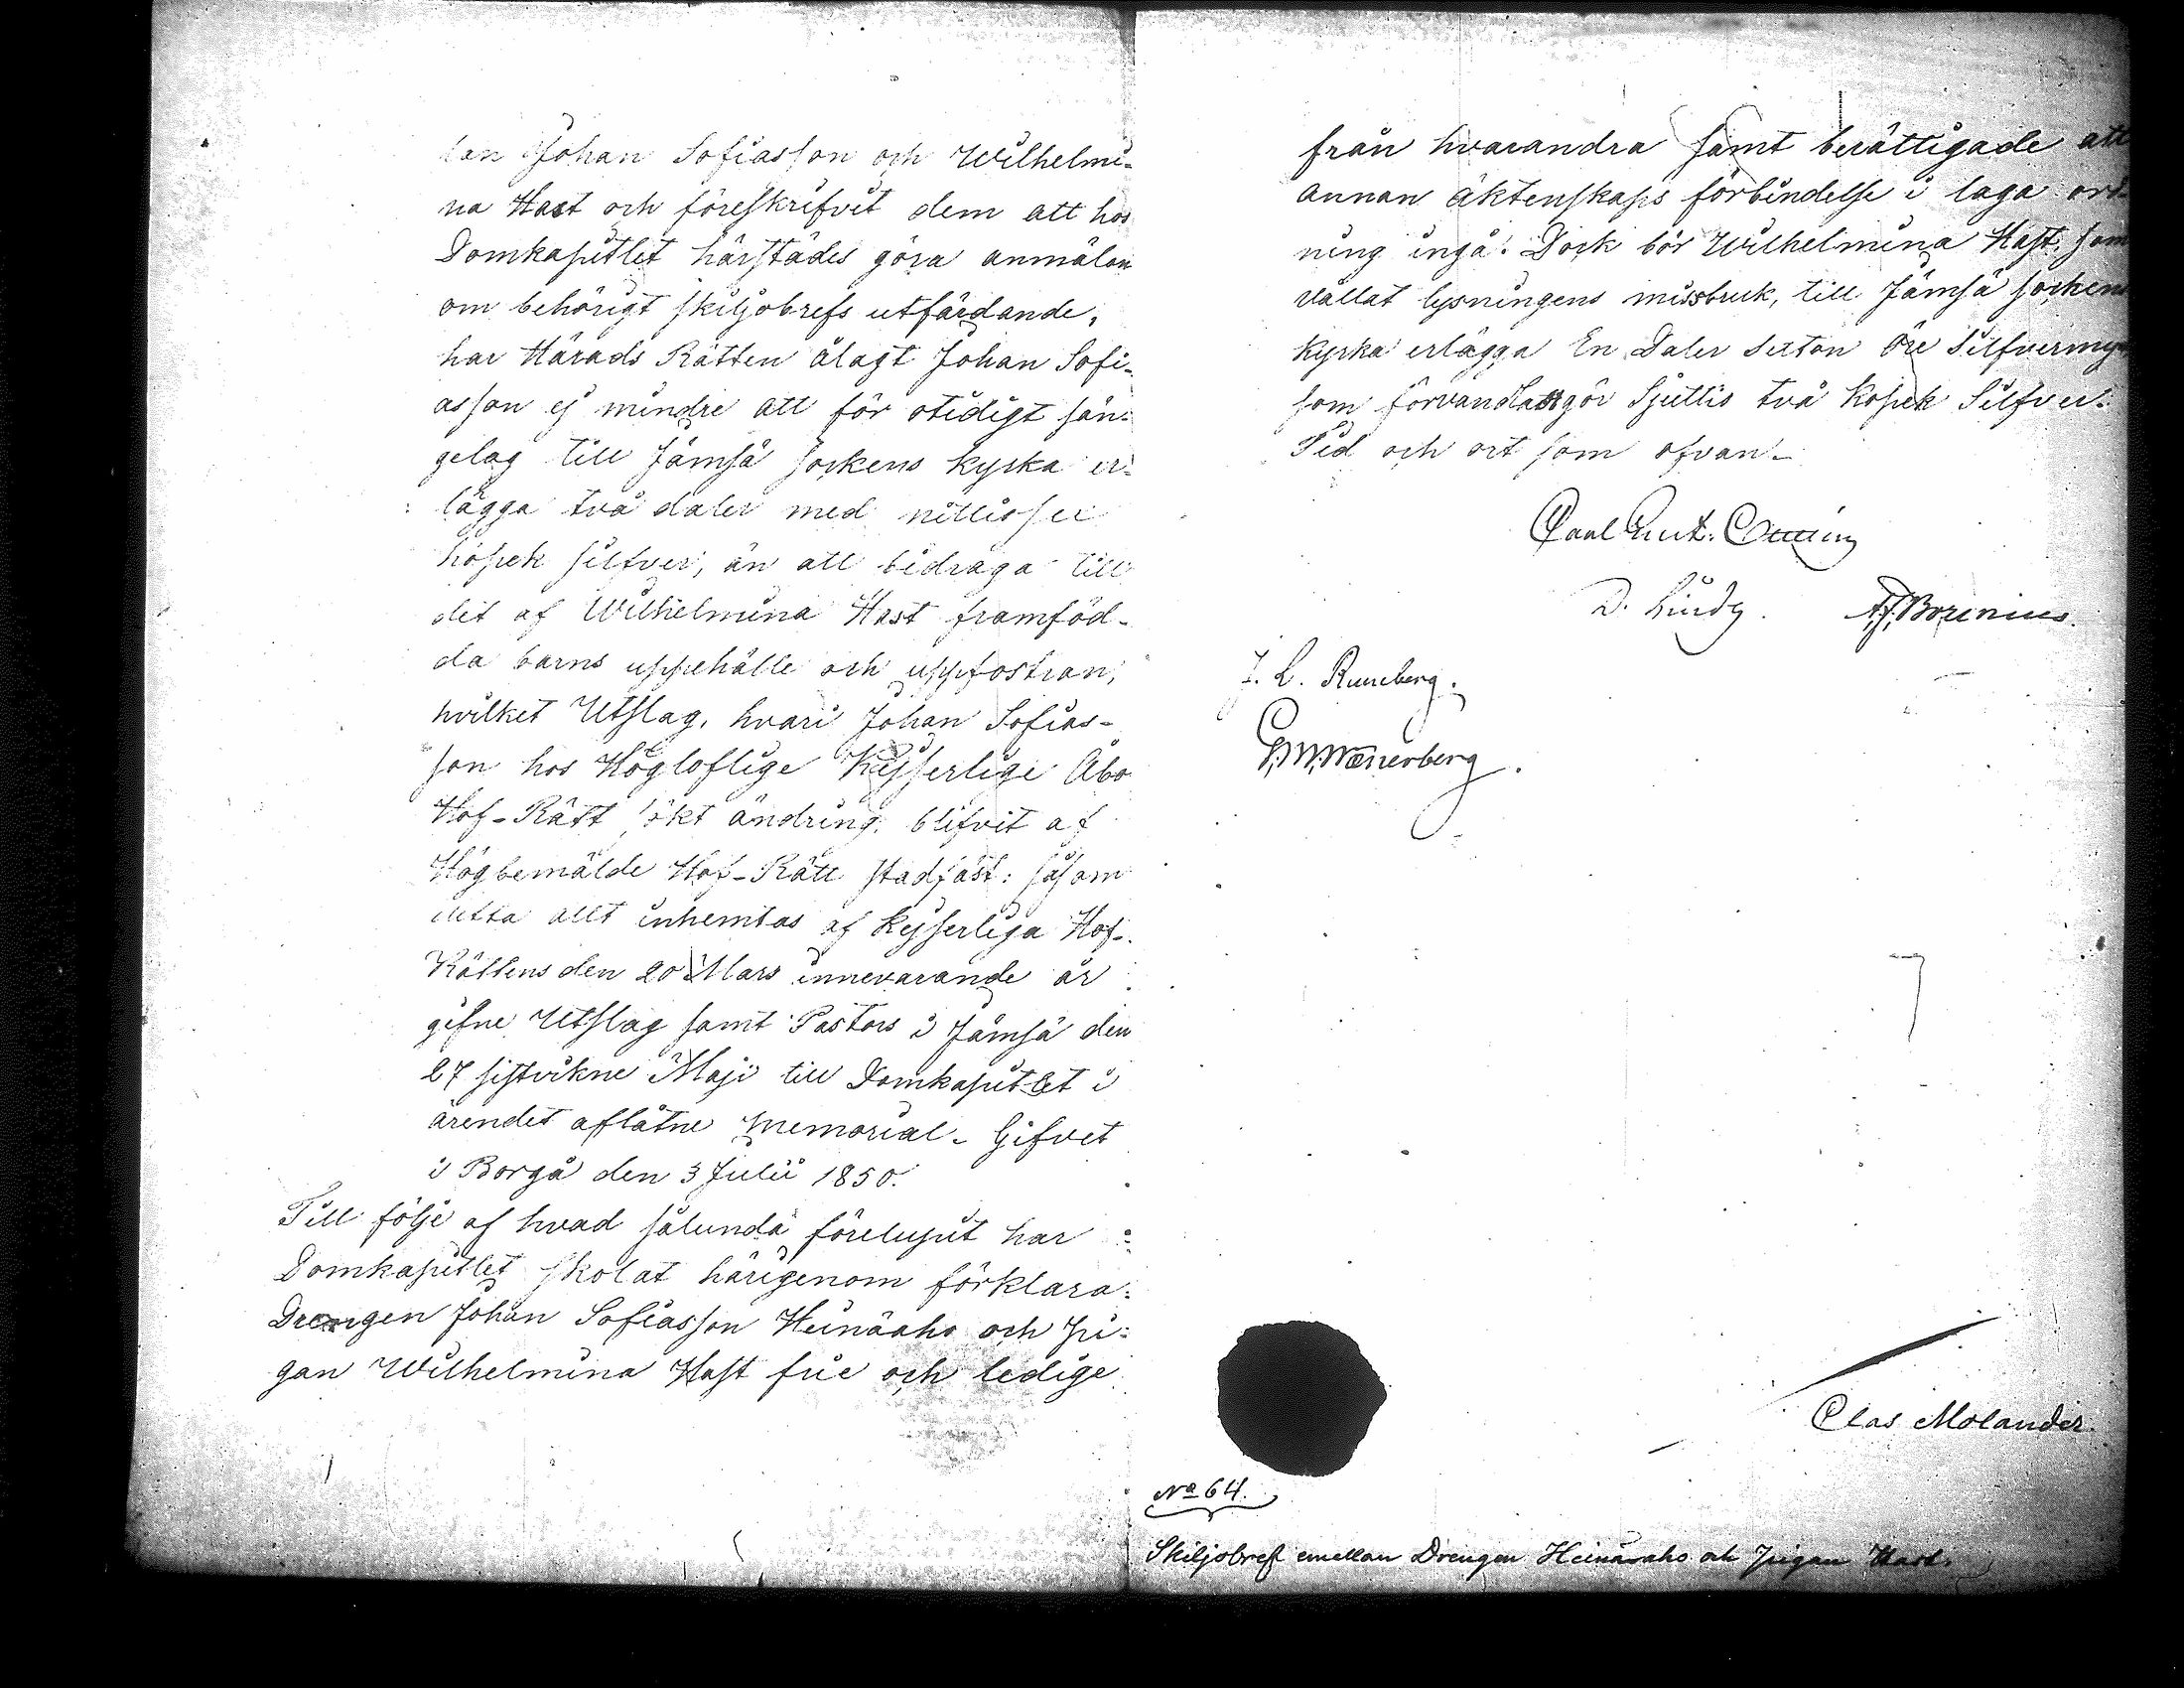 lan Johan Sofiasson och Wilhelmi-
na Hast och föreskrifvit dem att hos
Domkapitlet härstädes göra anmälan
om behörigt skiljobrefs utfärdande,
har Härads Rätten ålagt Johan Sofi-
asson ej mindre att för otidigt sän-
gelag till Jämsä sockens kyrka er-
lägga två daler med nittiosex
kopek silfver, än att bidraga till
det af Wilhelmina Hast framföd-
da barns uppehälle och uppfostran,
hvilket Utslag, hvari Johan Sofias-
son hos Högloflige Kejserlige Åbo
Hof-Rätt sökt ändring, blifvit af
Högbemälde Hof-Rätt stadfäst: såsom
detta allt inhemtas af Kejserliga Hof-
Rättens den 20 Mars innevarande år
gifne Utslag samt Pastors i Jämsä den
27 sistvikne Maji till Domkapitlet i
ärendet aflåtne Memorial. Gifvet
i Borgå den 3 Julii 1850.
Till följe af hvad sålunda förelupit har
Domkapitlet skolat härigenom förklara
Drengen Johan Sofiasson Heinäaho och Pi-
gan Wilhelmina Hast frie och ledige
från hvarandra samt berättigade att
annan äktenskaps förbindelse i laga ord-
ning ingå. Dock bör Wilhelmina Hast, som
vållat lysningens missbruk, till Jämsä sockens
kyrka erlägga En Daler sexton Öre Silfvermynt
som förvandladt gör Sjuttio två Kopek Silfver.
Tid och ort som ofvan.
Carl Gust. Ottelin
D. Lindh. A. J. Borenius.
J. L. Runeberg.
G. W. Wænerberg.
Clas Molander.
No 64.
Skiljobref emellan Drengen Heinäaho och Pigan Hast.